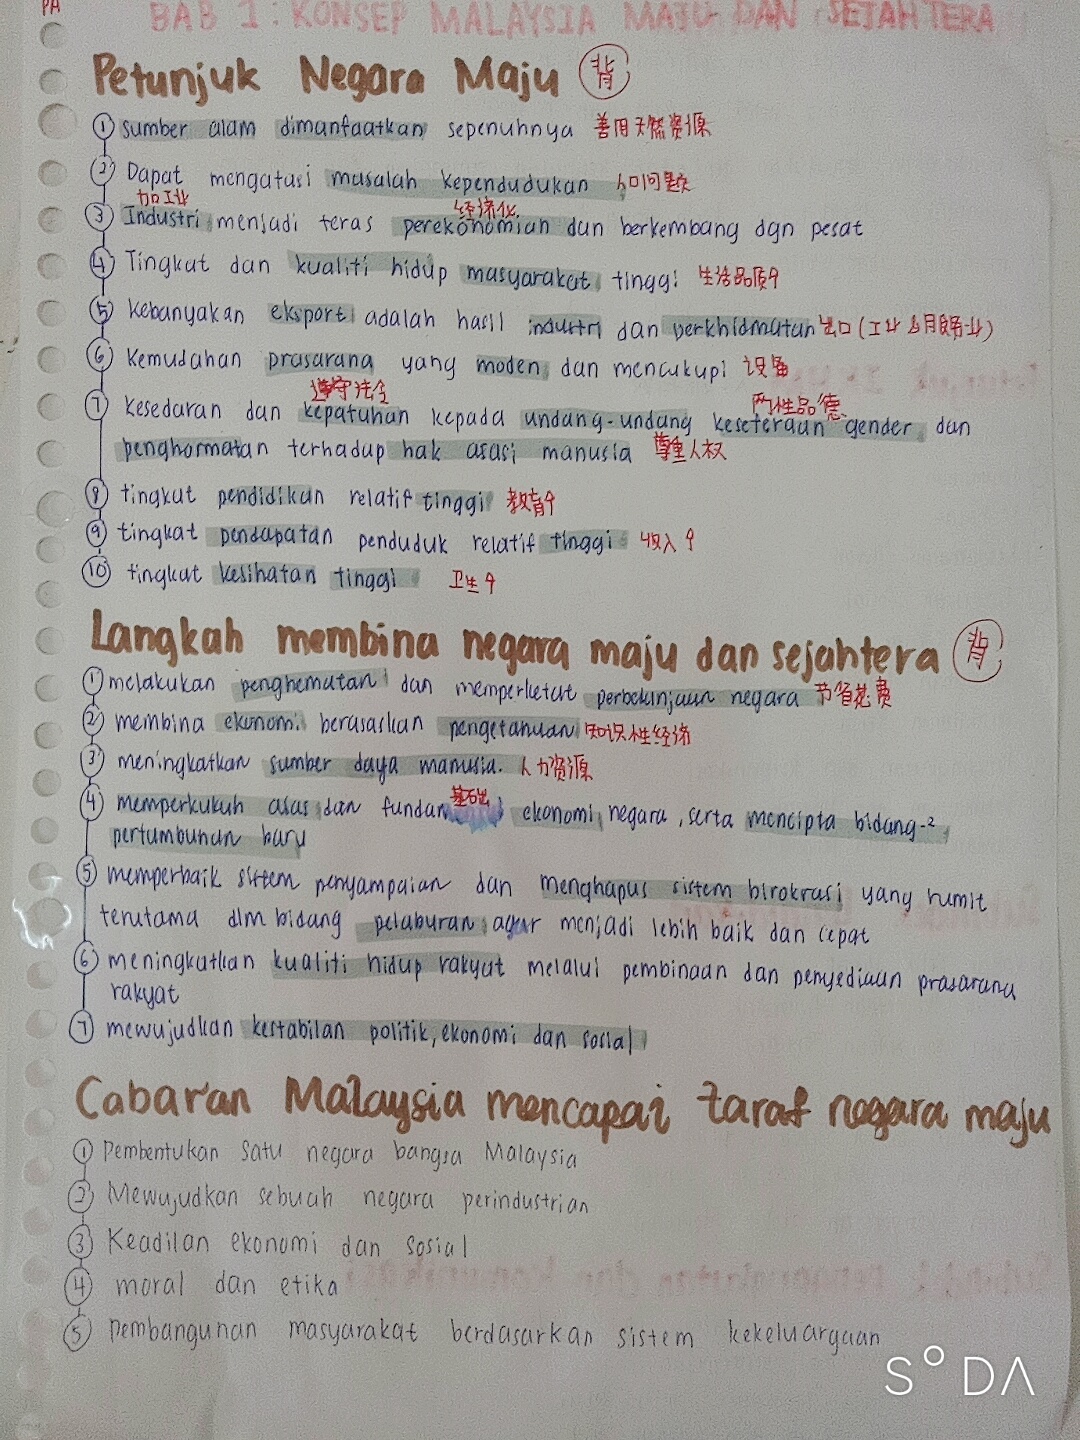 PA
BAB 1: KONSEP MALAYSIA MAJU DAN SEJAHTERA
Petunjuk Negara Maju 背
① sumber alam dimanfaatkan sepenuhnya 善用天然资源
② Dapat mengatasi masalah kependudukan 人口问题
加工业 经济化
③ Industri menjadi teras perekonomian dan berkembang dgn pesat
④ Tingkat dan kualiti hidup masyarakat tinggi 生活品质↑
⑤ Kebanyakan eksport adalah hasil industri dan perkhidmatan 出口(工业 服务业)
⑥ Kemudahan prasarana yang moden dan mencukupi 设备
遵守法令 两性品德
⑦ kesedaran dan kepatuhan kepada undang-undang kesetaraan gender dan
penghormatan terhadap hak asasi manusia 尊重人权
⑧ tingkat pendidikan relatif tinggi 教育↑
⑨ tingkat pendapatan penduduk relatif tinggi 收入↑
⑩ tingkat kesihatan tinggi 卫生↑
Langkah membina negara maju dan sejahtera 背
① melakukan penghematan dan memperketat perbelanjaan negara 节省花费
② membina ekonomi berasaskan pengetahuan 知识性经济
③ meningkatkan sumber daya manusia. 人力资源
基础
④ memperkukuh asas dan fundam ekonomi negara, serta mencipta bidang-²
pertumbuhan baru
⑤ memperbaik sistem penyampaian dan menghapus sistem birokrasi yang rumit
terutama dlm bidang pelaburan agar menjadi lebih baik dan cepat
⑥ meningkatkan kualiti hidup rakyat melalui pembinaan dan penyediaan prasarana
rakyat
⑦ mewujudkan kestabilan politik, ekonomi dan sosial
Cabaran Malaysia mencapai taraf negara maju
① Pembentukan satu negara bangsa Malaysia
② Mewujudkan sebuah negara perindustrian
③ Keadilan ekonomi dan sosial
④ moral dan etika
⑤ pembangunan masyarakat berdasarkan sistem kekeluargaan
SODA